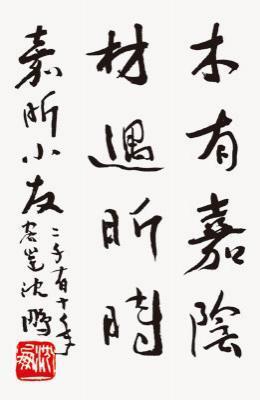 木有嘉陰
材遇昕時
嘉昕小友
二千有十年
沈鵬